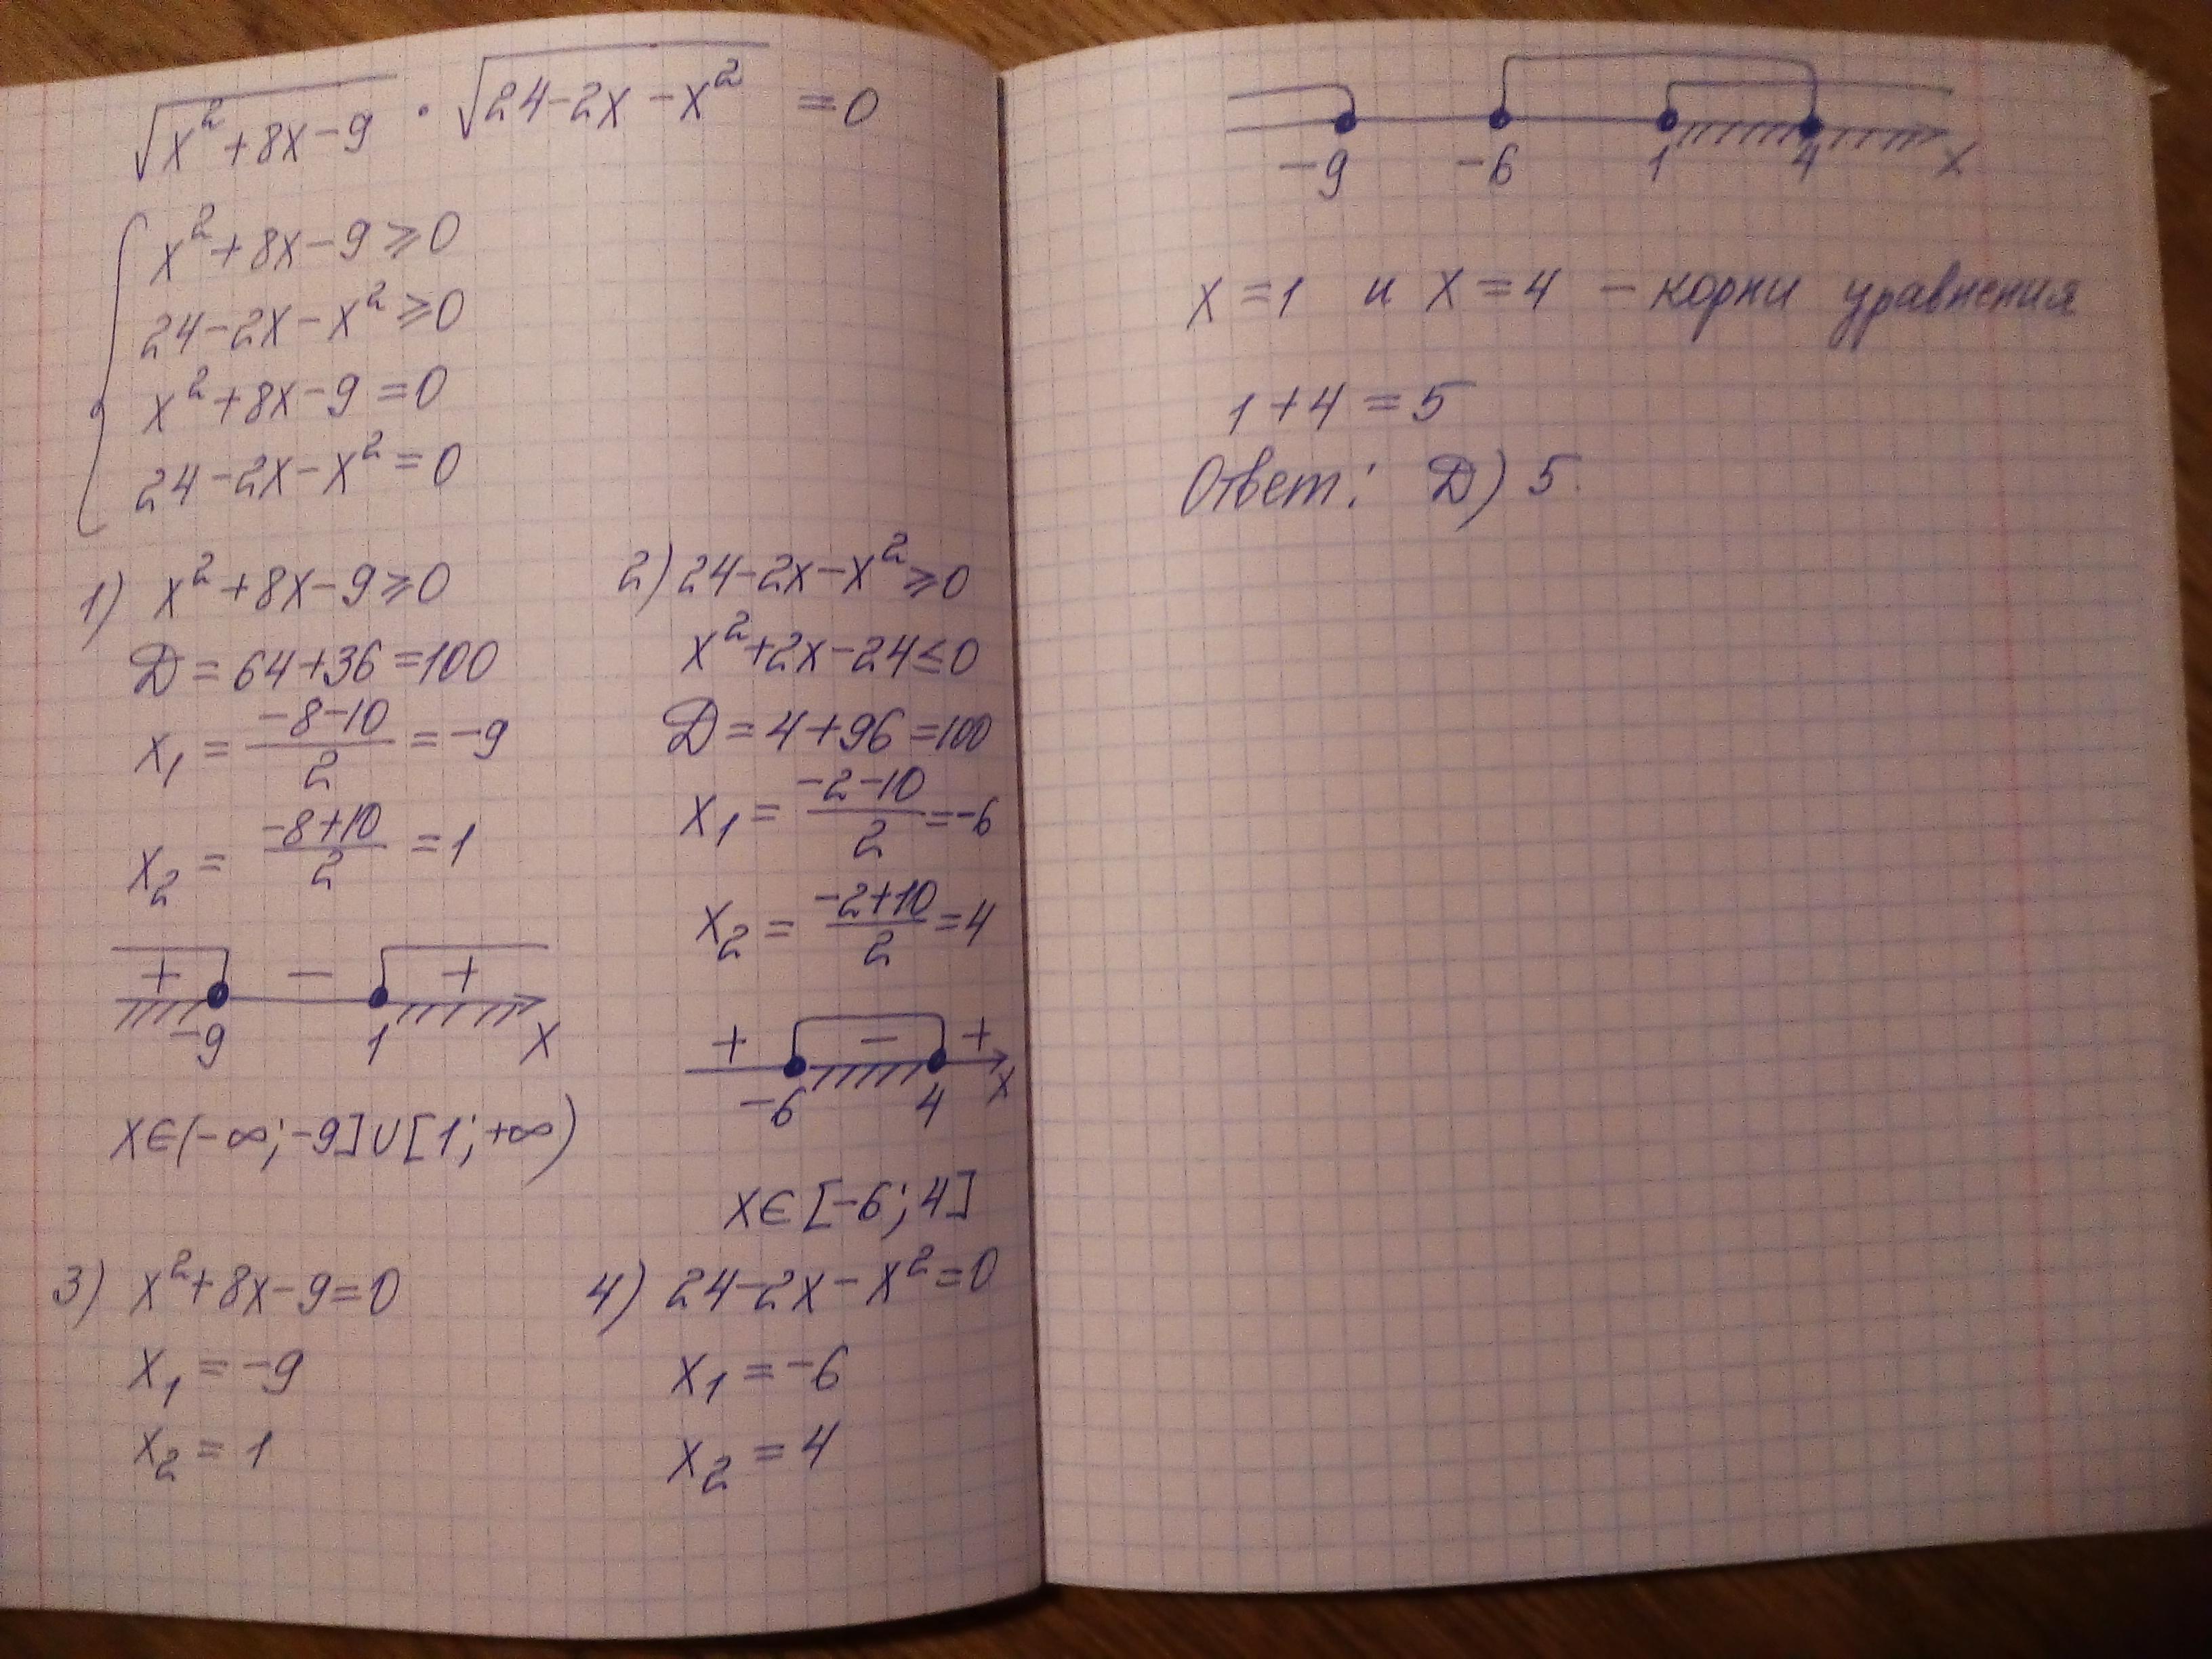 √(x²+8x-9) · √(24-2x-x²) =0
x²+8x-9≥0
24-2x-x²≥0
x²+8x-9=0
24-2x-x²=0
1) x²+8x-9≥0
D=64+36=100
x₁ = (-8-10)/2 =-9
x₂ = (-8+10)/2 =1
+ − +
-9 1 x
x∈(-∞;-9]∪[1;+∞)
2) 24-2x-x²≥0
x²+2x-24≤0
D=4+96=100
x₁= (-2-10)/2 =-6
x₂= (-2+10)/2 =4
+ − +
-6 4 x
x∈[-6;4]
3) x²+8x-9=0
x₁=-9
x₂=1
4) 24-2x-x²=0
x₁=-6
x₂=4
-9 -6 1 4 x
x=1 и x=4 – корни уравнения
1+4=5
Ответ: D) 5.